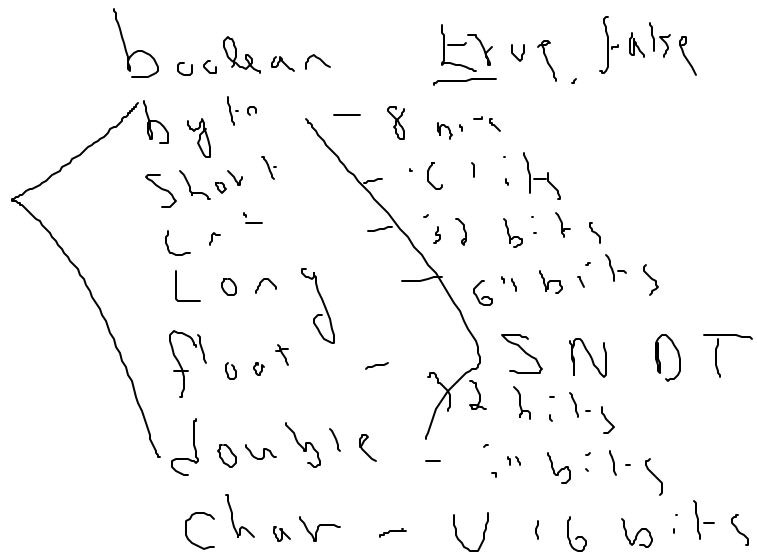 boolean true, false
byte - 8 bits
short - 16 bits
int - 32 bits
Long - 64 bits
float - 32 bits
SNDT
double - 64 bits
char - U 16 bits